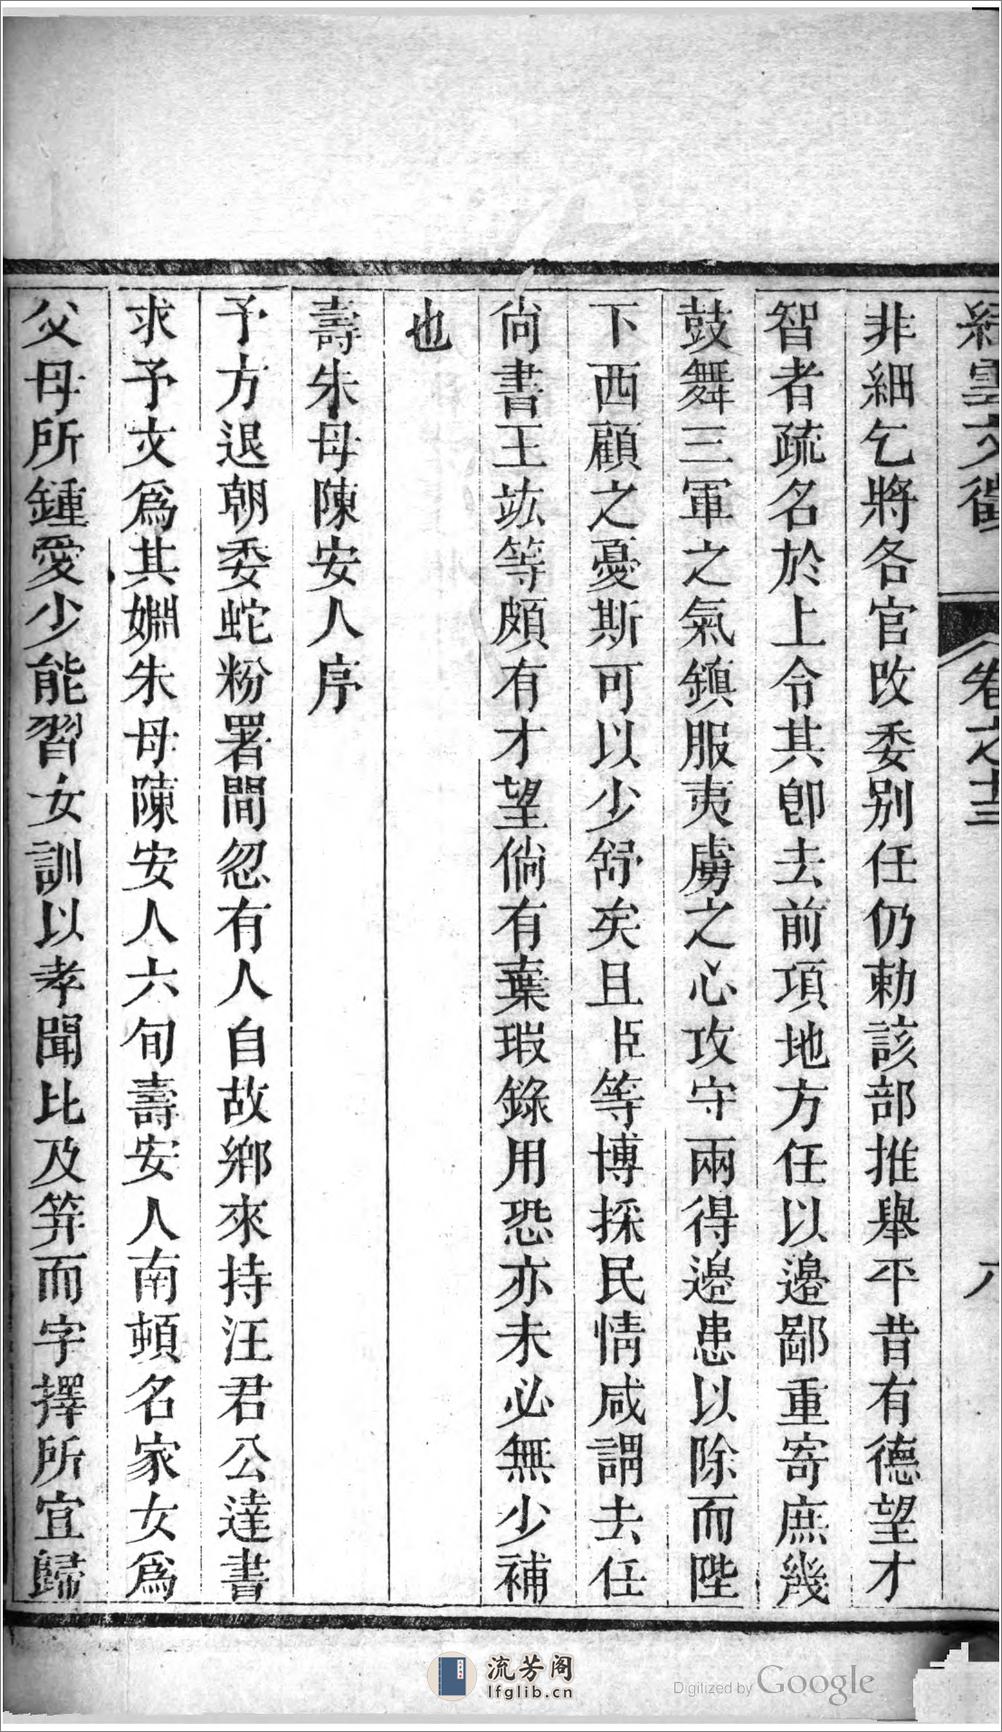 縉雲文徵
卷之十三
八
非細乞將各官改委别任仍勅該部推舉平昔有德望才
智者疏名於上令其卽去前項地方任以邊鄙重寄庶幾
鼓舞三軍之氣鎮服夷虜之心攻守兩得邊患以除而陛
下西顧之憂斯可以少舒矣且臣等博採民情咸謂去任
尙書王竑等頗有才望倘有棄瑕錄用恐亦未必無少補
也
壽朱母陳安人序
予方退朝委蛇粉署間忽有人自故鄉來持汪君公達書
求予文爲其婣朱母陳安人六旬壽安人南頓名家女爲
父母所鍾愛少能習女訓以孝聞比及笄而字擇所宜歸
流芳阁
lfglib.cn
Digitized by Google